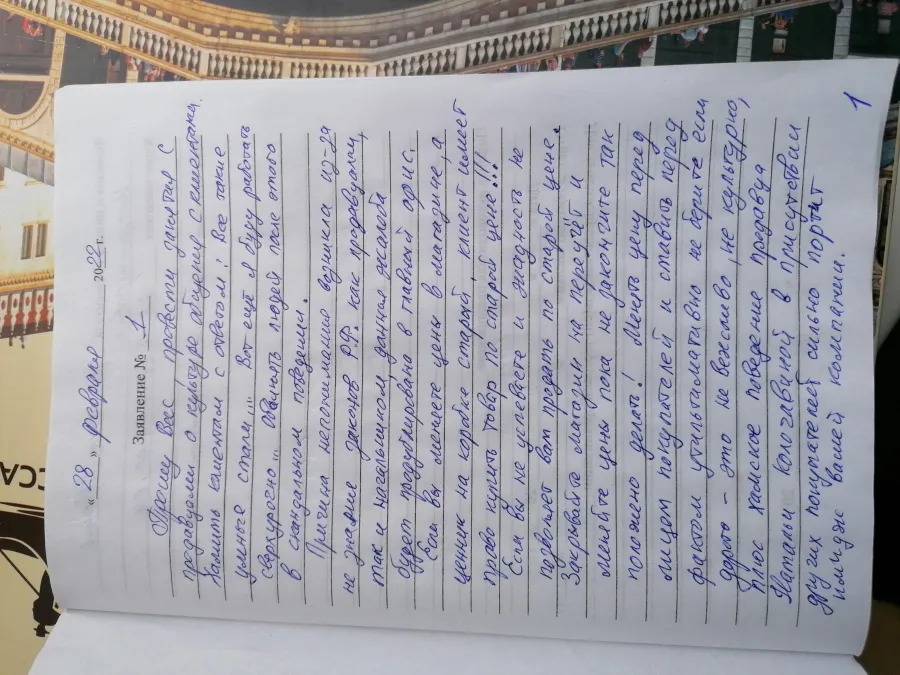 « 28 » февраля 2022 г.
Заявление № 1
Прошу вас провести занятия с
продавцами о культуре общения с клиентами.
Хамить клиентам с ответом: Все такие
умные стали... Вот ещё я буду работать
сверхурочно... Обвинять людей после этого
в скандальном поведении.
Причина непонимания возникла из-за
не знание законов Р.Ф. как продавцами,
так и начальником данная жалоба
будет продублирована в главный офис.
Если вы меняете цены в магазине, а
ценник на коробке старый, клиент имеет
право купить товар по старой цене!!!
Если вы не успеваете и жадность не
позволяет вам продать по старой цене.
Закрывайте магазин на переучёт и
меняйте цены пока не закончите так
положено делать! Менять цену перед
лицем покупателей и ставить перед
фактом ультимативно не берите если
дорого - это не вежливо, не культурно,
Плюс хамское поведение продавца
Натальи в присутствии
других покупателей сильно портит
имидж вашей компании.
1
ССА